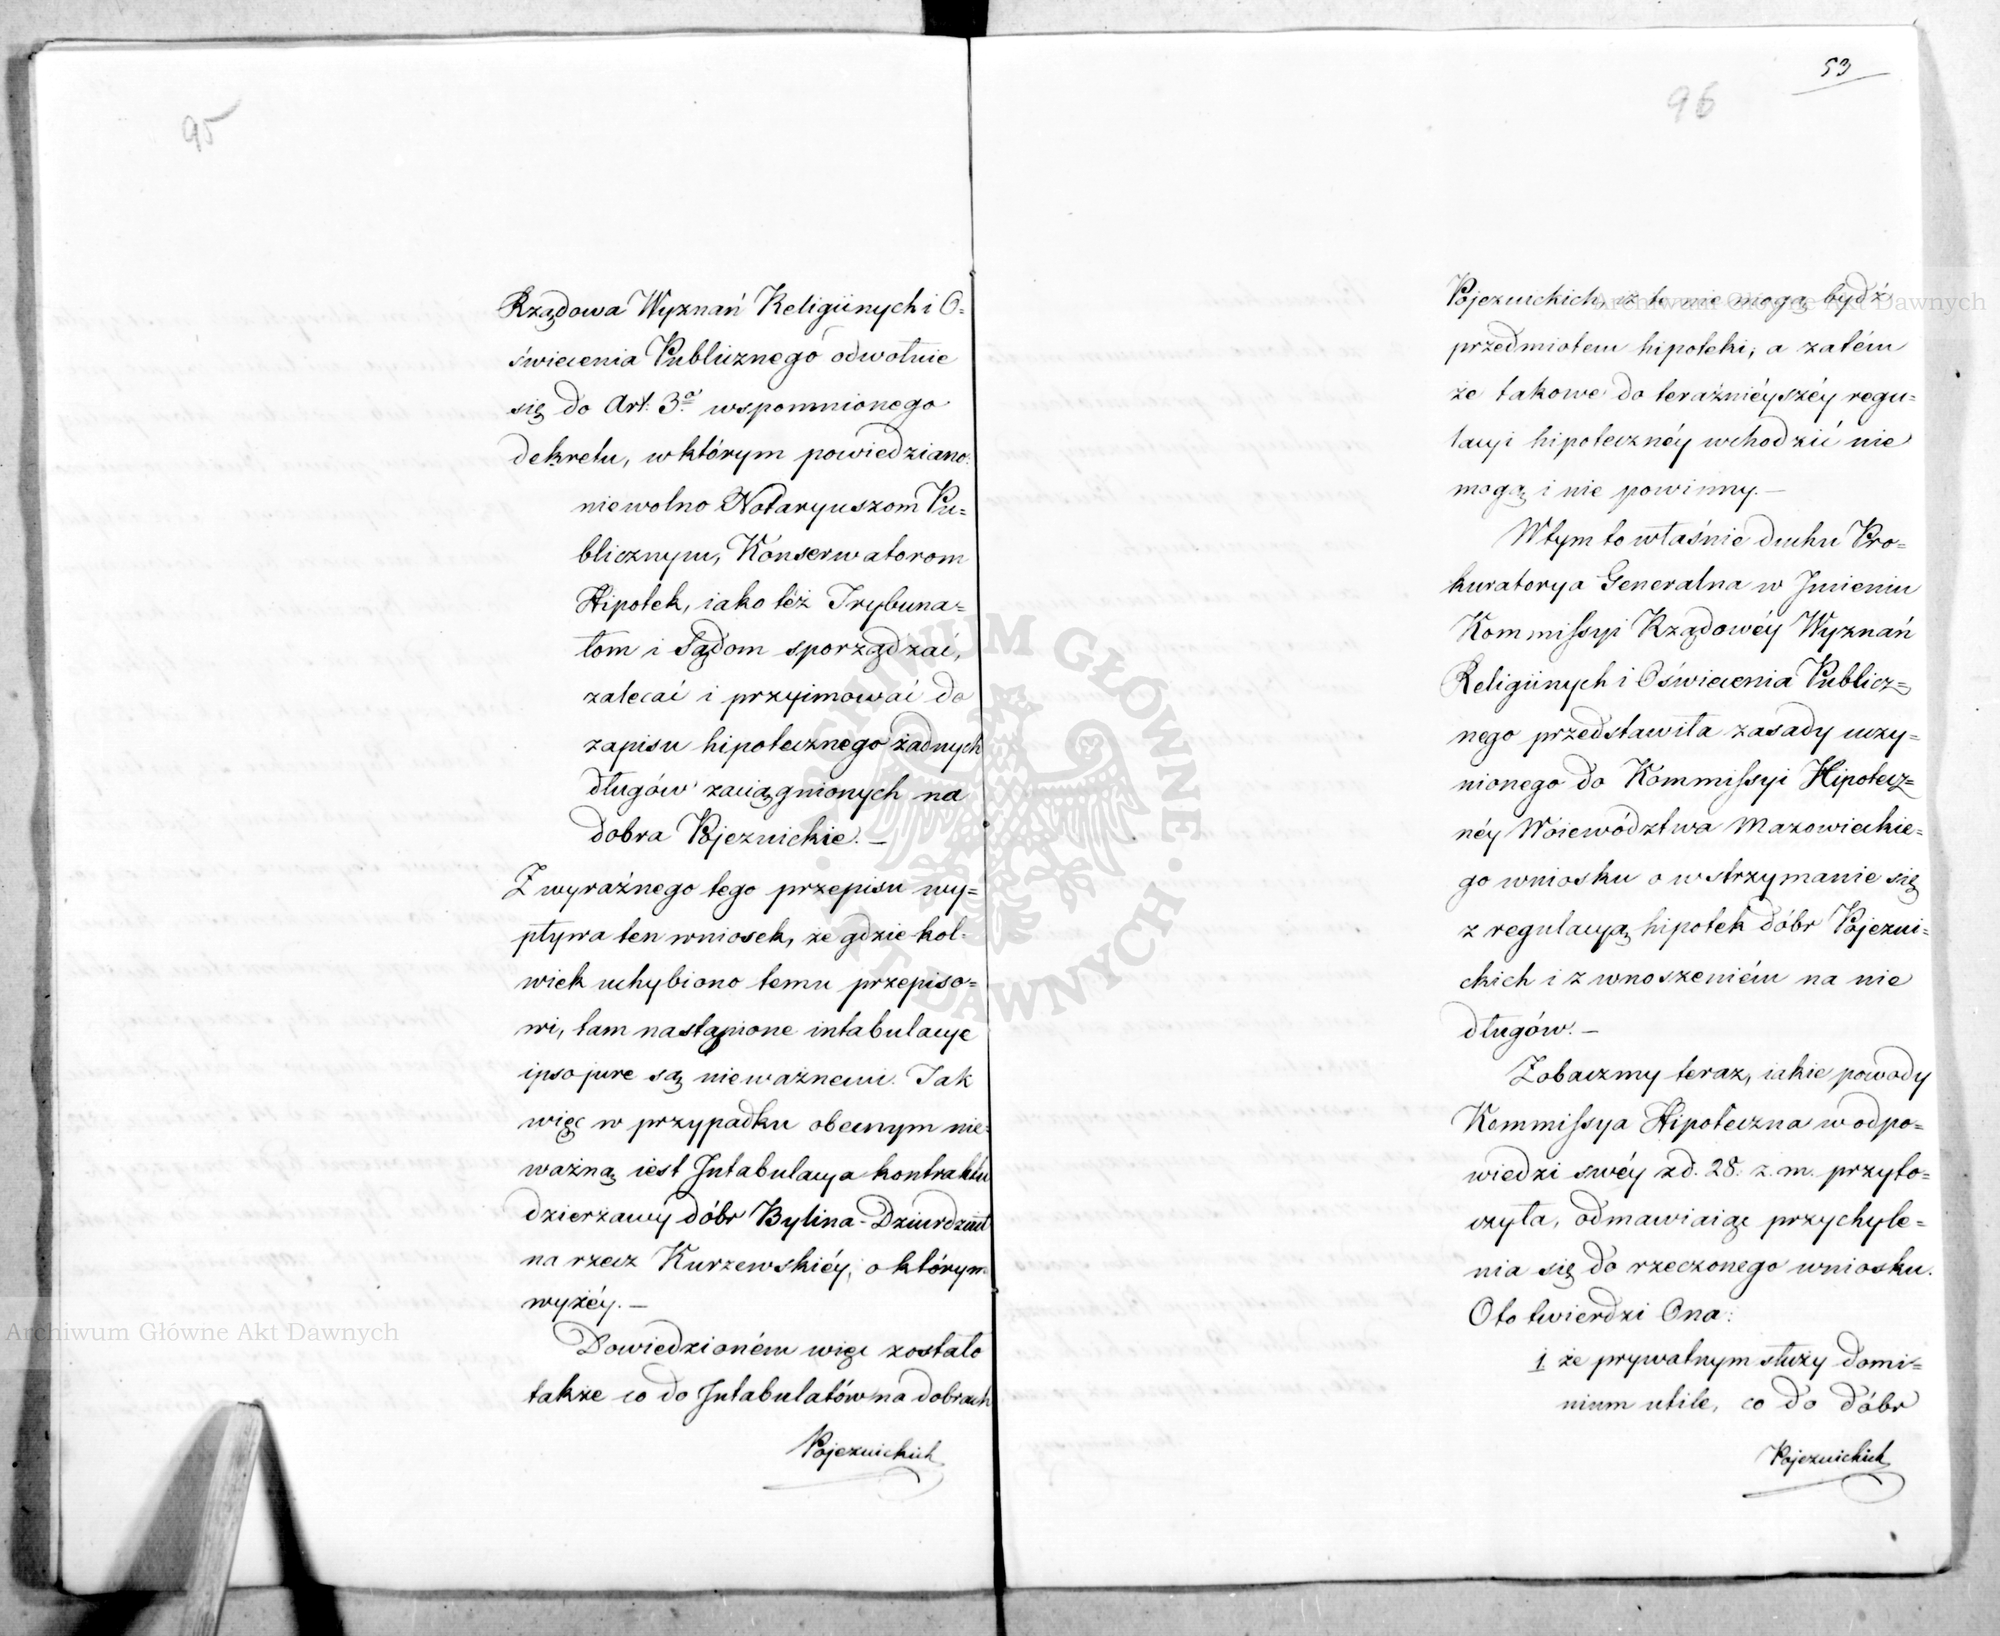 95
Rządowa Wyznań Religiinych i O=
świecenia Publicznego odwołuie
się do Art: 3º wspomnionego
dekretu, w którym powiedziano:
niewolno Notaryuszom Pu=
blicznym, Konserwatorom
Hipotek, iako też Trybuna=
łom i Sądom sporządzać,
zalecać i przyimować do
zapisu hipotecznego żadnych
długów zaciągnionych na
dobra Pojezuickie. —
Z wyraźnego tego przepisu wy=
pływa ten wniosek, że gdzie kol=
wiek uchybiono temu przepiso=
wi, tam nastąpione intabulacye
ipso jure są nieważnemi. Tak
więc w przypadku obecnym nie=
ważną iest Intabulacya kontraktu
dzierżawy dóbr Bylina-Dziurdziuł
na rzecz Kurzewskiéy, o którym
wyżéy. —
Dowiedzioném więc zostało
także co do Intabulatów na dobrach
Pojezuickich
53
96
Pojezuickich, iż te nie mogą bydź
przedmiotem hipoteki; a zatém
że takowe do teraźnieyszéy regu=
lacyi hipotecznéy wchodzić nie
mogą i nie powinny. —
W tym to właśnie duchu Pro=
kuratorya Generalna w Jmieniu
Kommissyi Rządowéy Wyznań
Religiinych i Oświecenia Publicz=
nego przedstawiła zasady uczy=
nionego do Kommissyi Hipotecz=
néy Woiewództwa Mazowieckie=
go wniosku o wstrzymanie się
z regulacyą hipotek dóbr Pojezui=
ckich i z wnoszeniém na nie
długów. —
Zobaczmy teraz, iakie powody
Kommissya Hipoteczna w odpo=
wiedzi swéy z d. 28. z. m. przyto=
czyła, odmawiaiąc przychyle=
nia się do rzeczonego wniosku.
Oto twierdzi Ona:
1 że prywatnym służy domi=
nium utile, co do dóbr
Pojezuickich
Archiwum Główne Akt Dawnych
Archiwum Główne Akt Dawnych
ARCHIWUM GŁÓWNE · AKT DAWNYCH ·